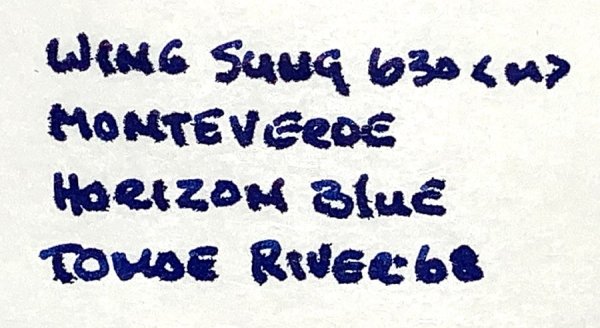 WING SUNG 630 <M>
MONTEVERDE
HORIZON BLUE
TOMOE RIVER 68